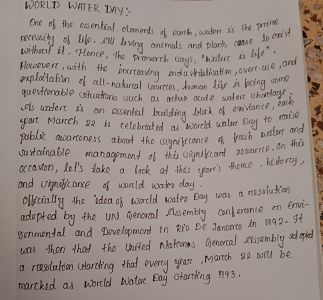 WORLD WATER DAY:-
One of the essential elements of earth, water is the prime
necessity of life. All living animals and plants cease to exist
without it. Hence, the proverb says, "Water is life".
However, with the increasing industrialisation, over-use, and
exploitation of all-natural sources, human life is facing some
questionable situations such as acute water shortage.
As water is an essential building block of existance, each
year March 22 is celebrated as World Water Day to raise
public awareness about the significance of fresh water and
sustainable management of this significant resource. On this
occasion, let's take a look at this year's theme, history,
and significance of world water day.
Officially the idea of World Water Day was a resolution
adopted by the UN General Assembly conference on Envi-
ronmental and Development in Rio De Janeiro in 1992. It
was then that the United Nations General Assembly adopted
a resolution stating that every year, March 22 will be
marked as World Water Day starting 1993.